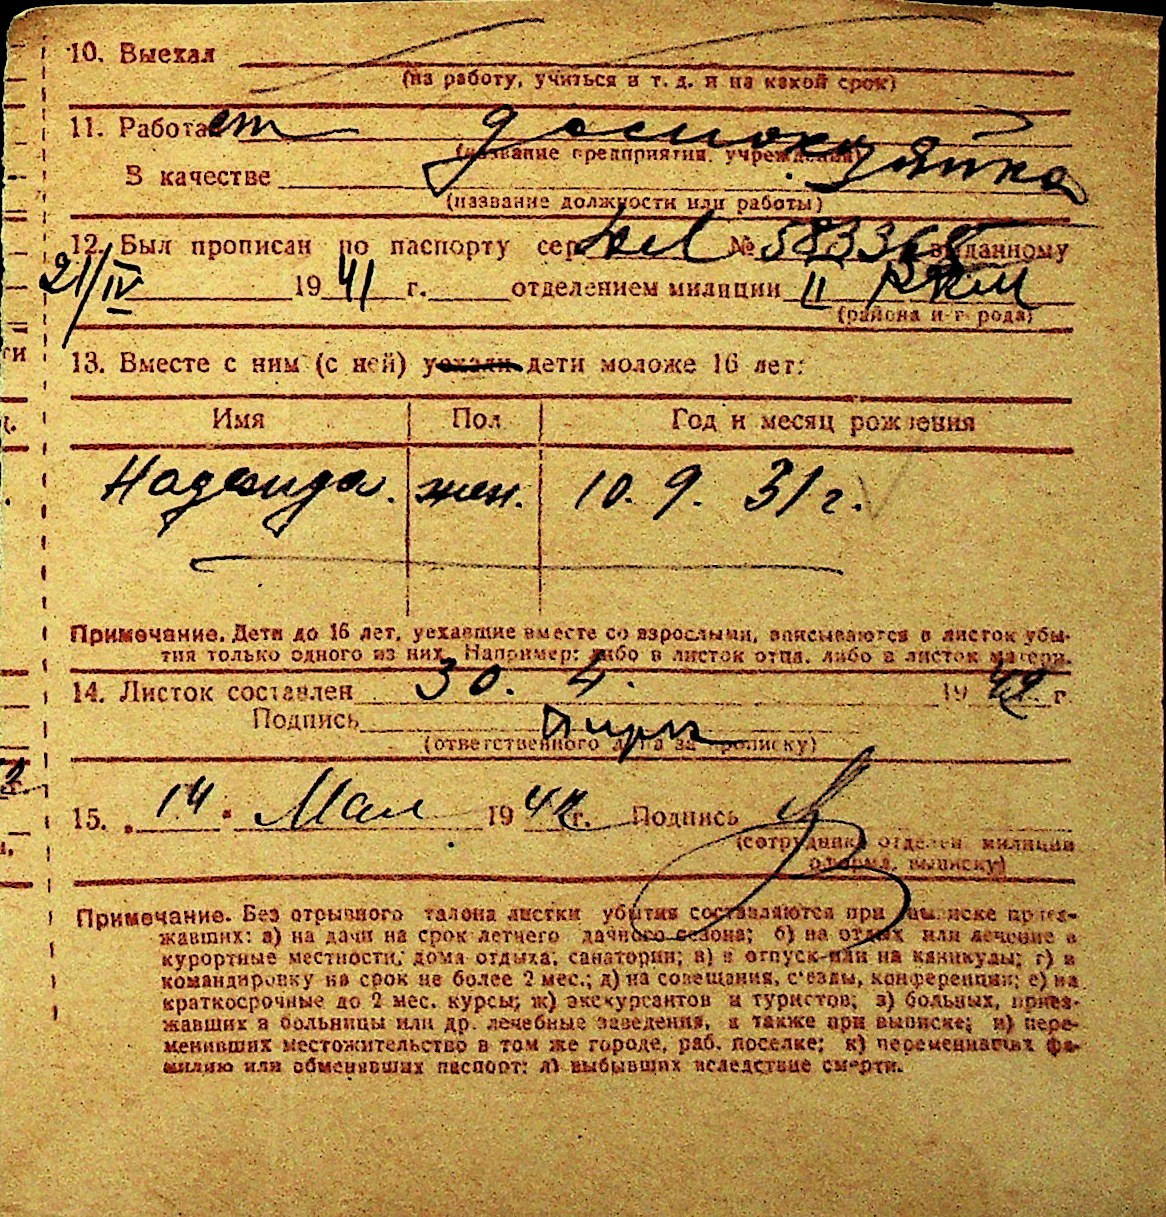 10. Выехал
(на работу, учиться и т. д. и на какой срок)
11. Работает домохозяйка
(название предприятия, учреждения)
В качестве
(название должности или работы)
12. Был прописан по паспорту сер. № 583368 выданному
21/IV 1941 г. отделением милиции II РКМ
(района и города)
13. Вместе с ним (с ней) уехали дети моложе 16 лет:
Имя Пол Год и месяц рождения
Надежда. жен. 10. 9. 31 г.
Примечание. Дети до 16 лет, уехавшие вместе со взрослыми, вписываются в листок убы-
тия только одного из них. Например: либо в листок отца, либо в листок матери.
14. Листок составлен 30. 4. 1942 г
Подпись
(ответственного лица за прописку)
15. „14" Мая 1942 г. Подпись
(сотрудника отделен. милиции
оформл. выписку)
Примечание. Без отрывного талона листки убытия составляются при выписке приез-
жавших: а) на дачи на срок летнего дачного сезона; б) на отдых или лечение в
курортные местности, дома отдыха, санатории; в) в отпуск или на каникулы; г) в
командировку на срок не более 2 мес.; д) на совещания, с'езды, конференции; е) на
краткосрочные до 2 мес. курсы; ж) экскурсантов и туристов; з) больных, приез-
жавших в больницы или др. лечебные заведения, а также при выписке; и) пере-
менивших местожительство в том же городе, раб. поселке; к) переменивших фа-
милию или обменявших паспорт; л) выбывших вследствие смерти.